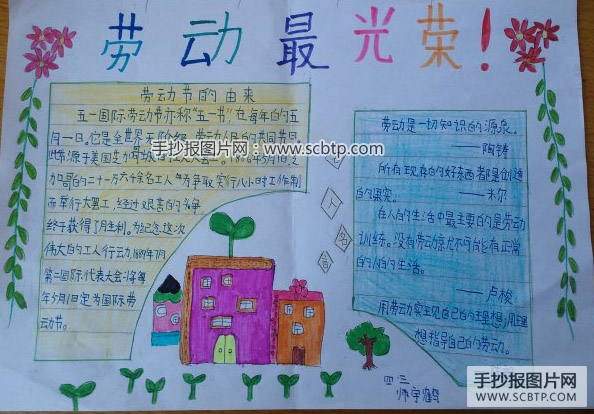 劳动最光荣！
劳动节的由来
五一国际劳动节亦称“五一节”在每年的五
月一日。它是全世界无阶级、劳动人民的共同节日
手抄报图片网 www.scbtp.com
加哥的二十一万六千余名工人为争取实行八小时工作制
而举行大罢工，经过艰苦的
终于获得了胜利。为纪念这次
伟大的工人行动，1889年7月
第二国际代表大会将每
年5月1日定为国际劳
动节。
劳动是一切知识的源泉。
——陶铸
所有现存的好东西都是创造
的果实。
——米尔
在人的生活中最主要的是劳动
训练。没有劳动就不可能有正常
的人的生活。
——卢梭
用劳动实现自己的理想，用理
想指导自己的劳动。
四三
手抄报图片网
WWW.SCBTP.COM